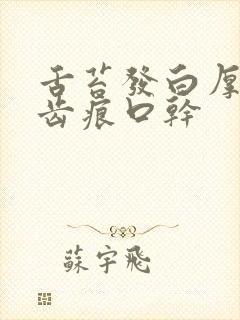 舌苔發白厚
齿痕口幹
蘇宇飛